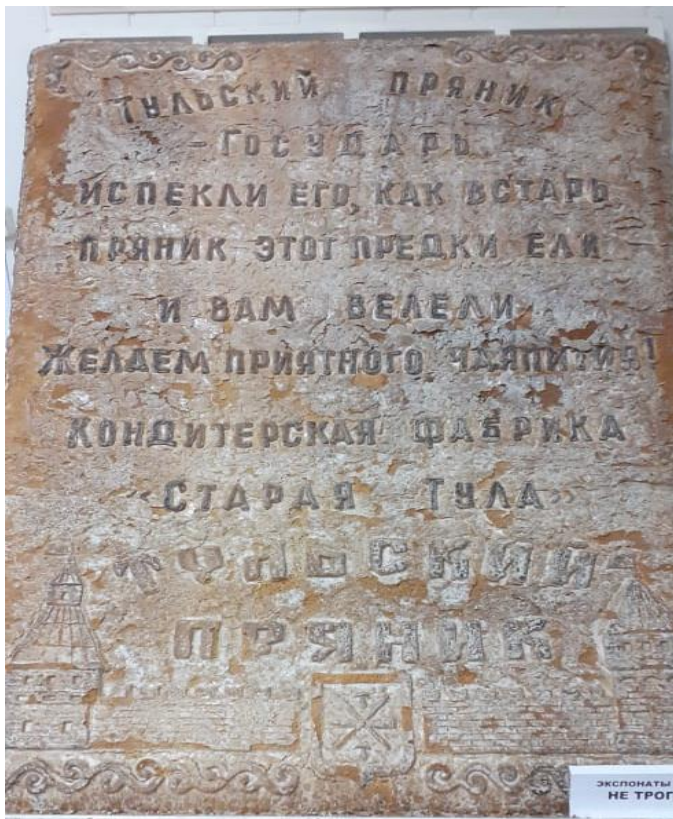 ТУЛЬСКИЙ ПРЯНИК
- ГОСУДАРЬ.
ИСПЕКЛИ ЕГО, КАК ВСТАРЬ
ПРЯНИК ЭТОТ ПРЕДКИ ЕЛИ
И ВАМ ВЕЛЕЛИ
ЖЕЛАЕМ ПРИЯТНОГО ЧАЯПИТИЯ!
КОНДИТЕРСКАЯ ФАБРИКА
«СТАРАЯ ТУЛА»
ТУЛЬСКИЙ
ПРЯНИК
ЭКСПОНАТЫ
НЕ ТРОГ